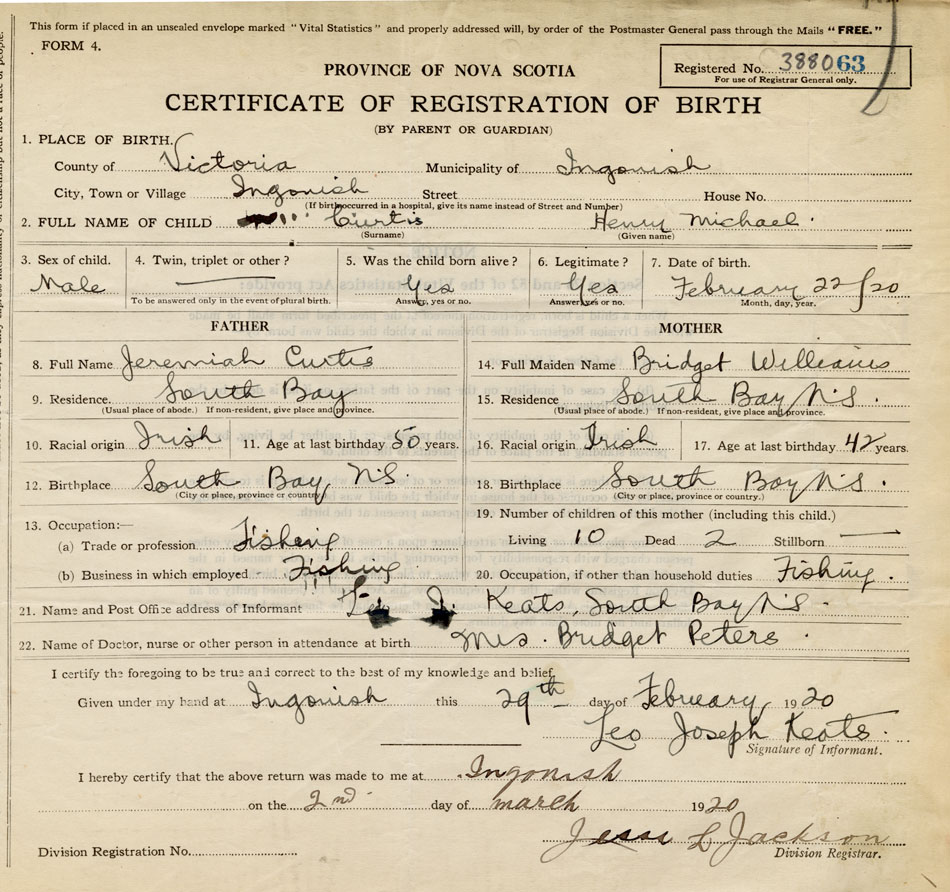 This form if placed in an unsealed envelope marked "Vital Statistics" and properly addressed will, by order of the Postmaster General pass through the Mails "FREE."
FORM 4.
Registered No. 388063
For use of Registrar General only.
PROVINCE OF NOVA SCOTIA
CERTIFICATE OF REGISTRATION OF BIRTH
(BY PARENT OR GUARDIAN)
1. PLACE OF BIRTH.
County of Victoria Municipality of Ingonish
City, Town or Village Ingonish Street House No.
(If birth occurred in a hospital, give its name instead of Street and Number)
2. FULL NAME OF CHILD Curtis Henry Michael
(Surname) (Given name)
3. Sex of child. 4. Twin, triplet or other? 5. Was the child born alive? 6. Legitimate? 7. Date of birth.
Male Yes Yes February 22/20
To be answered only in the event of plural birth. Answer, yes or no. Answer, yes or no. Month, day, year.
FATHER MOTHER
8. Full Name Jeremiah Curtis 14. Full Maiden Name Bridget Williams
9. Residence South Bay 15. Residence South Bay N S.
(Usual place of abode.) If non-resident, give place and province. (Usual place of abode.) If non-resident, give place and province.
10. Racial origin Irish 11. Age at last birthday 50 years. 16. Racial origin Irish 17. Age at last birthday 42 years.
12. Birthplace South Bay N S 18. Birthplace South Bay N S.
(City or place, province or country) (City or place, province or country.)
13. Occupation:— 19. Number of children of this mother (including this child.)
(a) Trade or profession Fishing Living 10 Dead 2 Stillborn —
(b) Business in which employed Fishing 20. Occupation, if other than household duties Fishing.
21. Name and Post Office address of Informant Leo J. Keats, South Bay N S.
22. Name of Doctor, nurse or other person in attendance at birth Mrs. Bridget Peters.
I certify the foregoing to be true and correct to the best of my knowledge and belief.
Given under my hand at Ingonish this 29th day of February, 1920
Leo Joseph Keats.
Signature of Informant.
I hereby certify that the above return was made to me at Ingonish
on the 2nd day of march 1920
Jesse L Jackson
Division Registration No. Division Registrar.